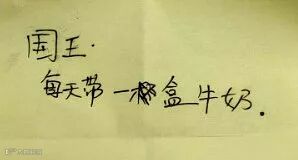 国王.
每天带一盒牛奶.